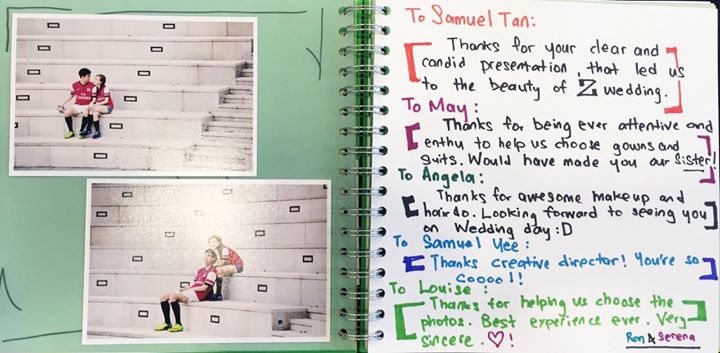 To Samuel Tan:
Thanks for your clear and
candid presentation, that led us
to the beauty of Z wedding.
To May:
Thanks for being ever attentive and
enthy to help us choose gowns and
suits. Would have made you our sister!
To Angela:
Thanks for awesome makeup and
hairdo. Looking forward to seeing you
on Wedding day :D
To Samuel Yee:
Thanks creative director! You're so
Coool!
To Louise:
Thanks for helping us choose the
photos. Best experience ever. Very
sincere. ♡!
Ron & Serena